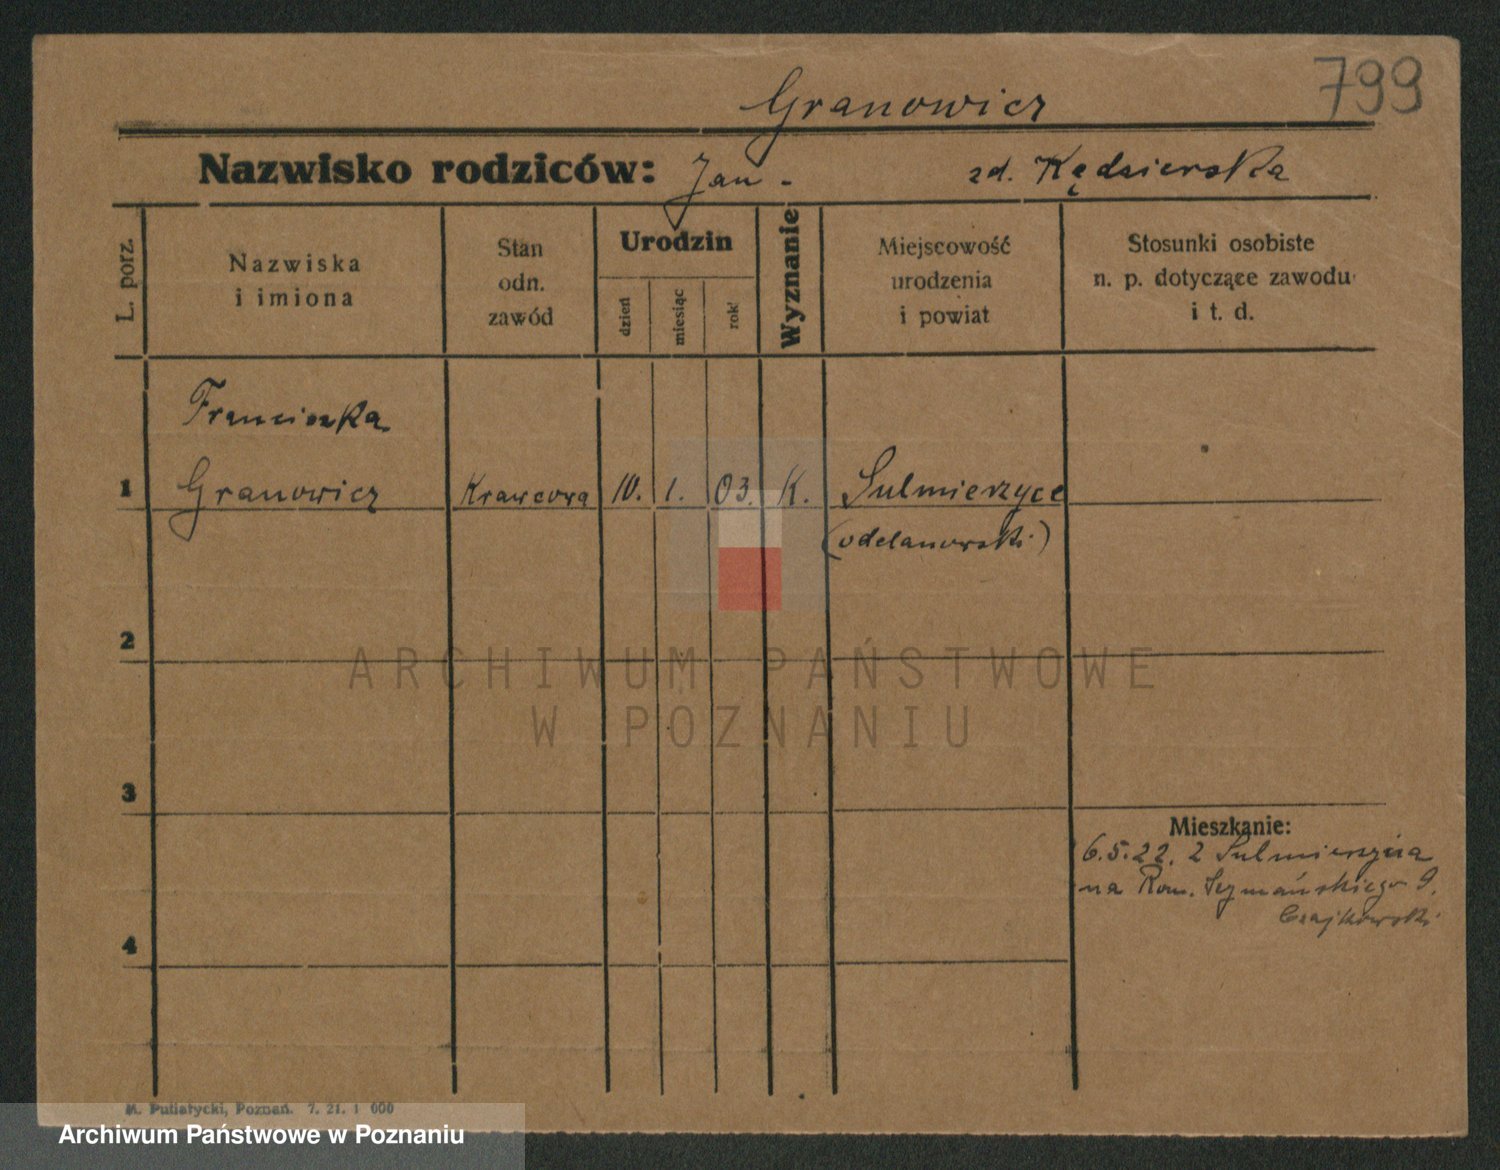 799
Granowicz
Nazwisko rodziców: Jan - zd. Kędzierska
L. porz.
Nazwiska
i imiona
Stan
odn.
zawód
Urodzin
dzień
miesiąc
rok
Wyznanie
Miejscowość
urodzenia
i powiat
Stosunki osobiste
n. p. dotyczące zawodu
i t. d.
Franciszka
1 Granowicz Krawcowa 10. 1. 03. K. Sulmierzyce
(odolanowski)
2
3
4
Mieszkanie:
6.5.22. z Sulmierzyc
na Rom. Szymańskiego 9.
Czajkowski
M. Putiatycki, Poznań. 7. 21. 1 000
ARCHIWUM PAŃSTWOWE
W POZNANIU
Archiwum Państwowe w Poznaniu